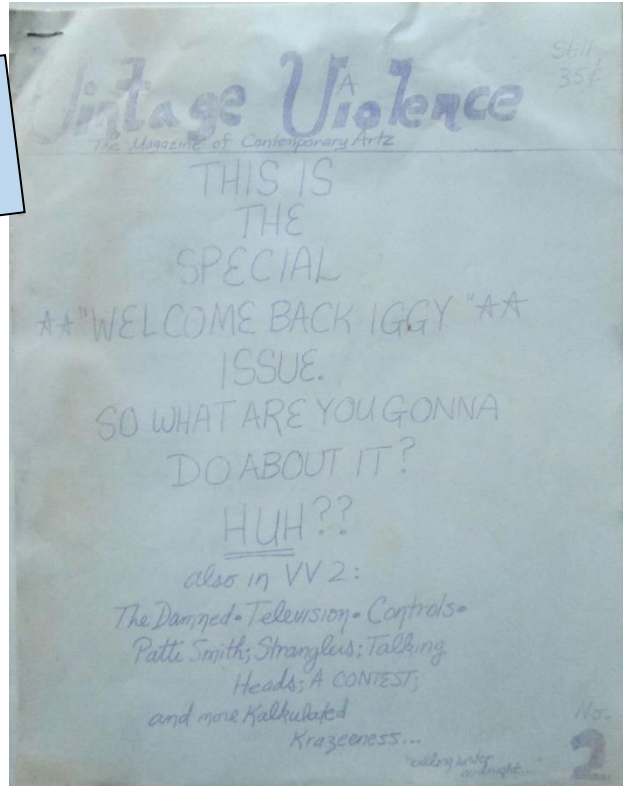 Still
35¢
Vintage Violence
A
The Magazine of Contemporary Artz
THIS IS
THE
SPECIAL
☆☆"WELCOME BACK IGGY"☆☆
ISSUE.
SO WHAT ARE YOU GONNA
DO ABOUT IT?
HUH??
also in VV 2:
The Damned • Television • Controls •
Patti Smith; Stranglers; Talking
Heads; A CONTEST;
and more Kalkulated
Krazeeness...
"calling sister
midnight..."
No.
2